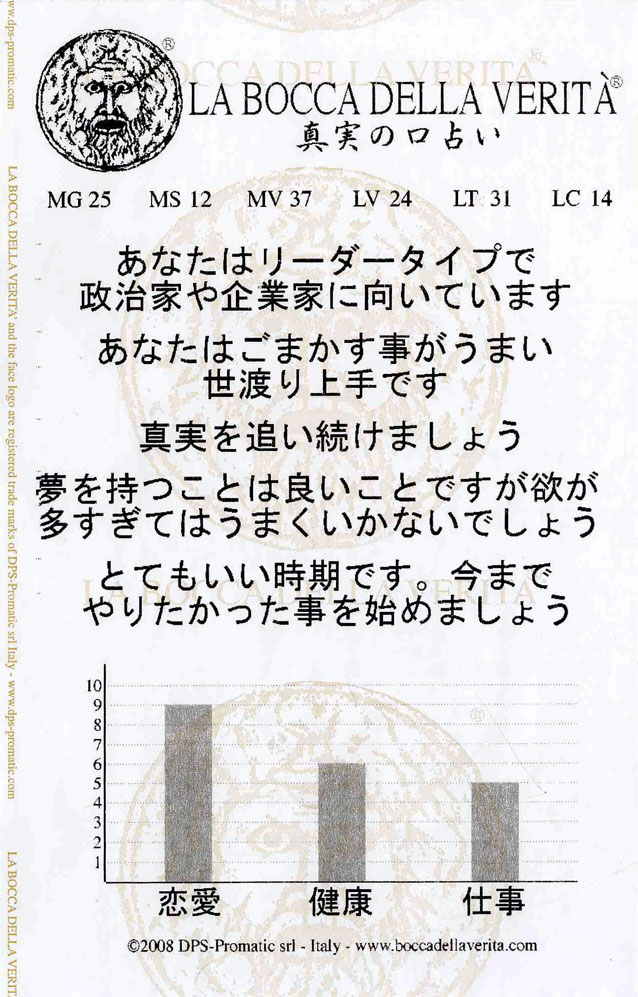 LA BOCCA DELLA VERITÀ®
真実の口占い
MG 25 MS 12 MV 37 LV 24 LT 31 LC 14
あなたはリーダータイプで
政治家や企業家に向いています
あなたはごまかす事がうまい
世渡り上手です
真実を追い続けましょう
夢を持つことは良いことですが欲が
多すぎてはうまくいかないでしょう
とてもいい時期です。今まで
やりたかった事を始めましょう
10
9
8
7
6
5
4
3
2
1
恋愛 健康 仕事
©2008 DPS-Promatic srl - Italy - www.boccadellaverita.com
www.dps-promatic.com
LA BOCCA DELLA VERITA' and the face logo are registered trade marks of DPS-Promatic srl Italy - www.dps-promatic.com
LA BOCCA DELLA VERIT
LA BOCCA DELLA VERITA